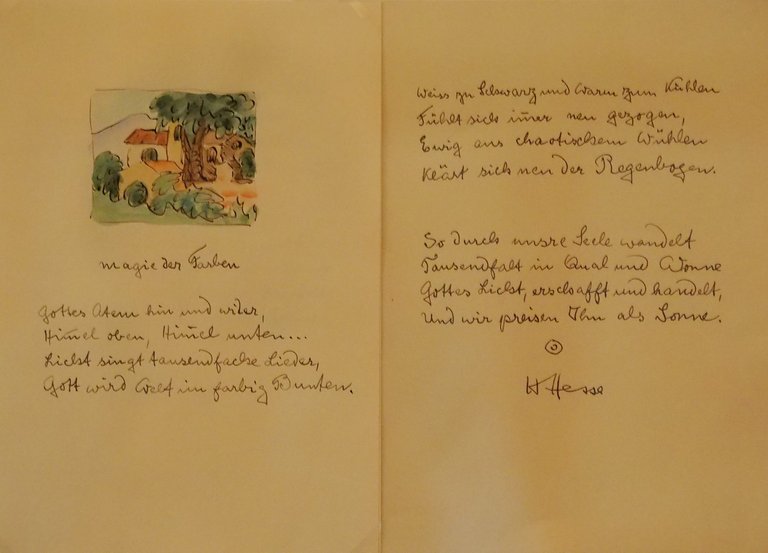 Magie der Farben
Gottes Atem hin und wider,
Him̄el oben, Him̄el unten...
Licht singt tausendfache Lieder,
Gott wird Welt im farbig Bunten.
Weiss zu Schwarz und Warm zum Kühlen
Fühlt sich im̄er neu gezogen,
Ewig aus chaotischem Wühlen
Klärt sich neu der Regenbogen.
So durch unsre Seele wandelt
Tausendfalt in Qual und Wonne
Gottes Licht, erschafft und handelt,
Und wir preisen Ihn als Sonne.
H Hesse